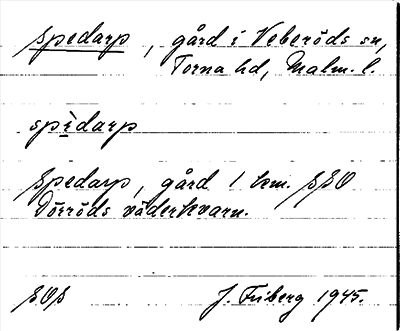 Spedarp, gård i Veberöds sn,
Torna hd, Malm. l.
spìdarp
Spedarp, gård 1 km. SSO
Dörröds väderkvarn.
SOS J. Friberg 1945.